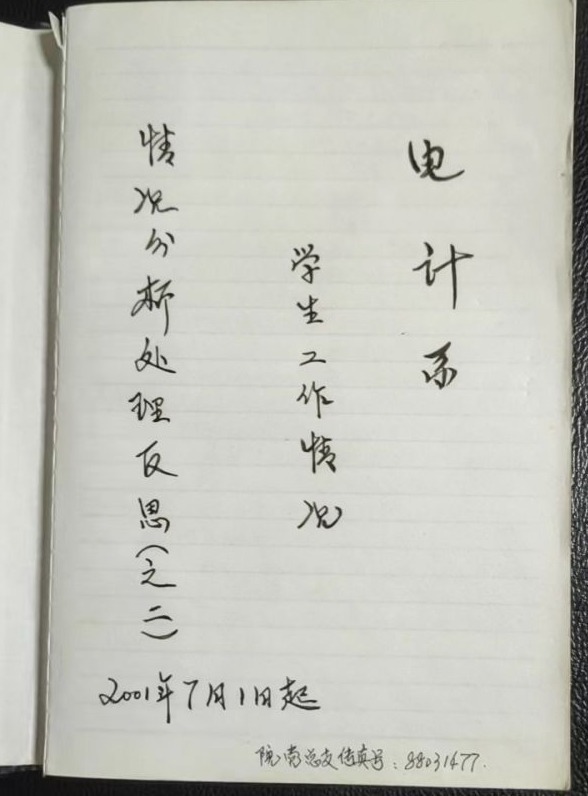 电计系
学生工作情况
情况分析处理反思(之二)
2001年7月1日起
院党总支传真号：88031477.